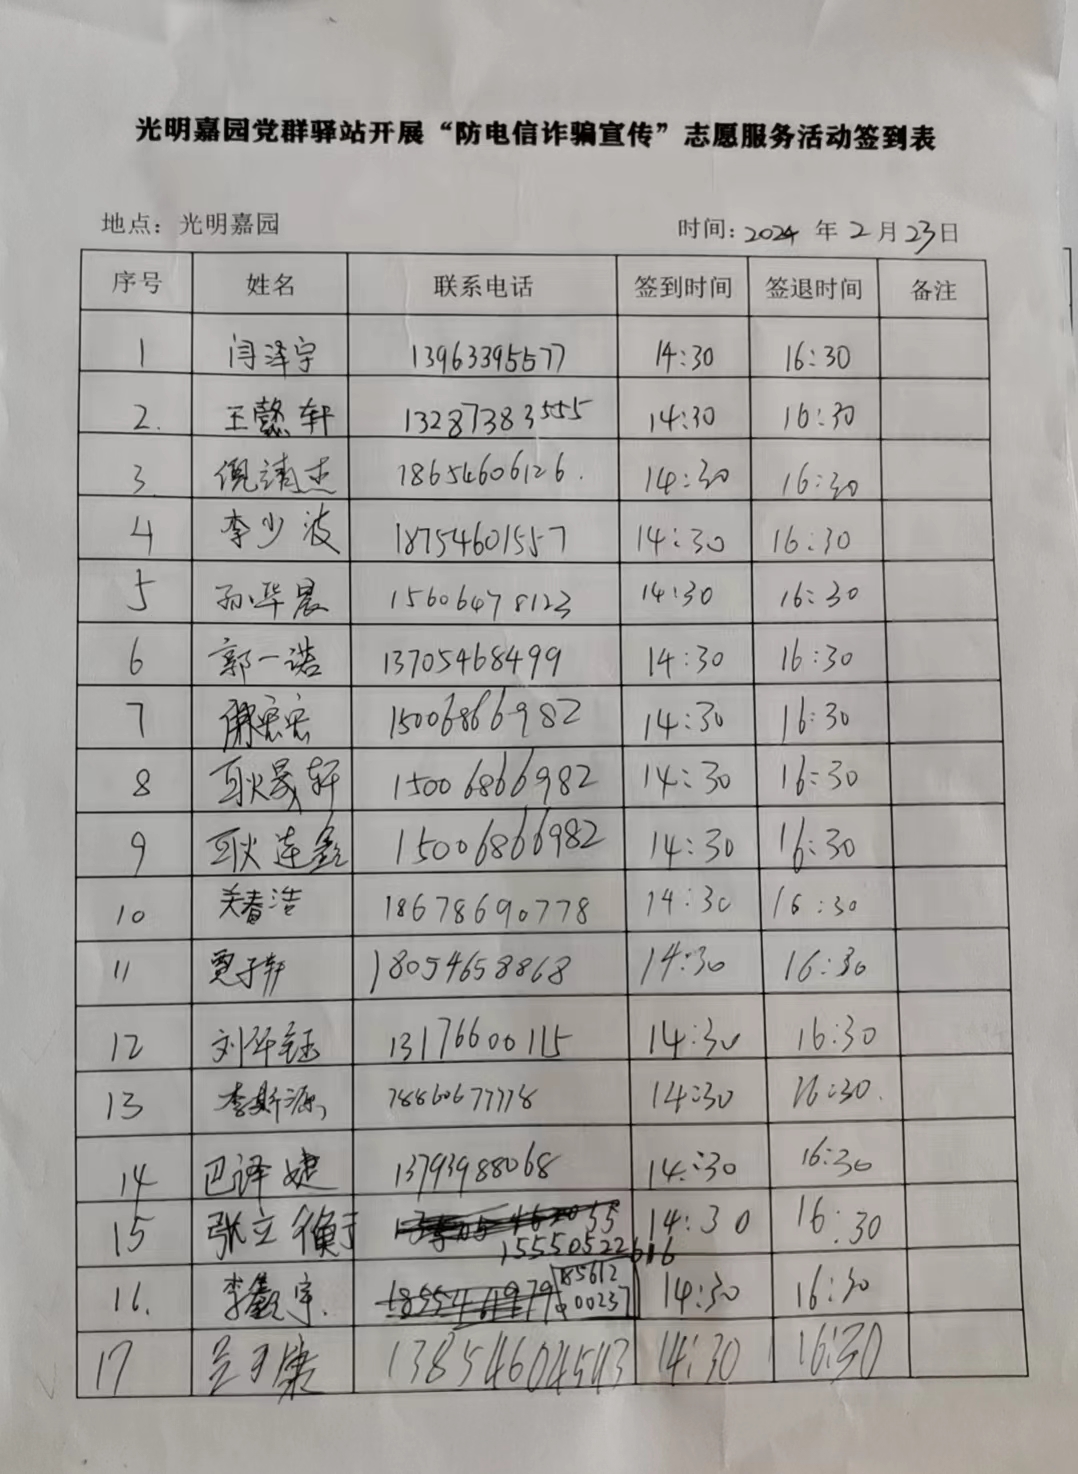 光明嘉园党群驿站开展“防电信诈骗宣传”志愿服务活动签到表
地点：光明嘉园 时间：2024年2月23日
序号 姓名 联系电话 签到时间 签退时间 备注
1 闫泽宇 13963395577 14:30 16:30
2. 王懿轩 13287383555 14:30 16:30
3. 倪靖杰 18654606126. 14:30 16:30
4 李少波 18754601557 14:30 16:30
5 孙华晨 15606478123 14:30 16:30
6 郭一诺 13705468499 14:30 16:30
7 15006866982 14:30 16:30
8 耿晟轩 15006866982 14:30 16:30
9 耿连鑫 15006866982 14:30 16:30
10 关春浩 18678690778 14:30 16:30
11 贾子轩 18054658868 14:30 16:30
12 刘华钰 13176600115 14:30 16:30
13 李斯源 14:30 16:30.
14 巴译婕 13793988068 14:30 16:30
15 张立衡 14:30 16:30
15550522616
16. 李 宇. 14:30 16:30
18561200237
17 13854604543 14:30 16:30